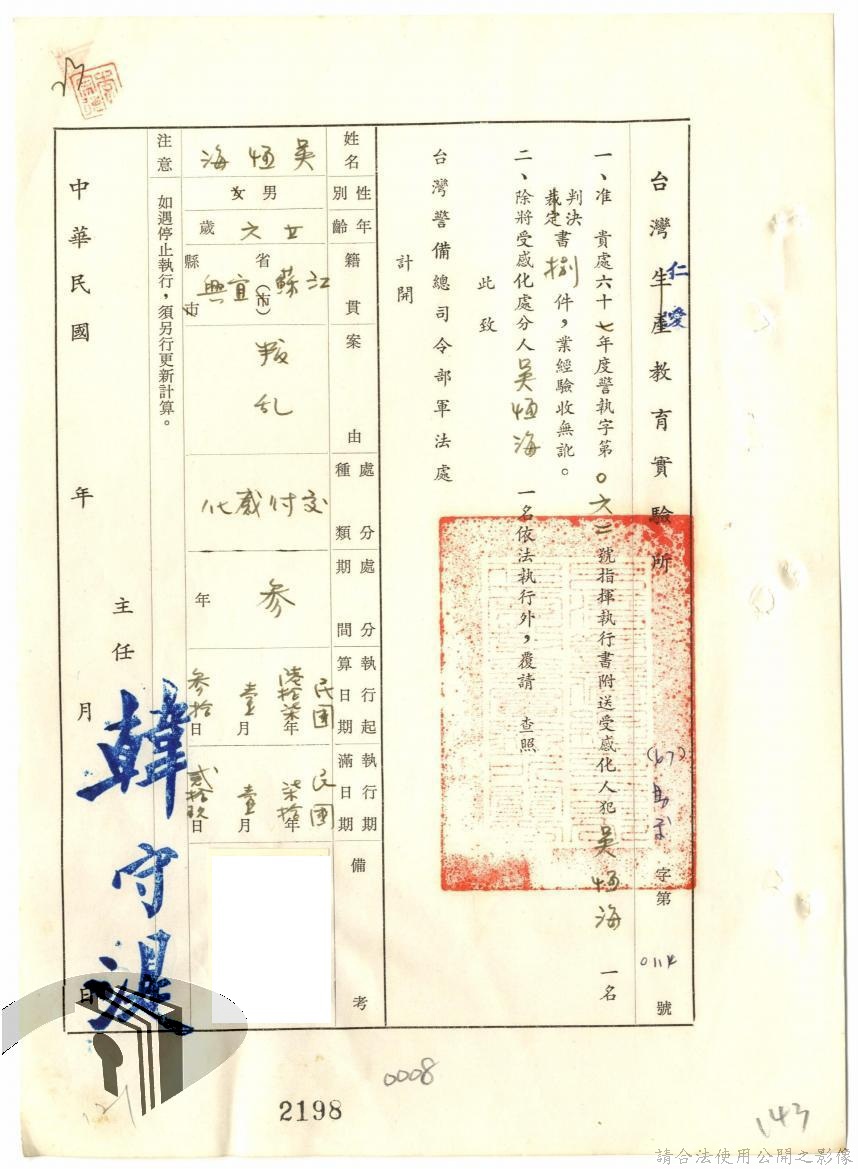 台灣生產教育實驗所 (67) 字第0114號
仁愛
一、准 貴處六十七年度警執字第〇六二號指揮執行書附送受感化人犯吳恆海一名
判決
裁定書捌件,業經驗收無訛。
二、除將受感化處分人吳恆海一名依法執行外,覆請 查照
此致
台灣警備總司令部軍法處
計開
姓名 吳恆海
性別 男 女
年齡 廿六歲
籍貫 江蘇省(市)宜興縣市
案由 叛乱
處分種類 交付感化
處分期間 參年
執行起算日期 民國陸拾柒年壹月參拾日
執行期滿日期 民國柒拾年壹月貳拾玖日
備考
注意 如遇停止執行,須另行更新計算。
主任 韓守湜
中華民國 年 月 日
0008
2198
143
請合法使用公開之影像